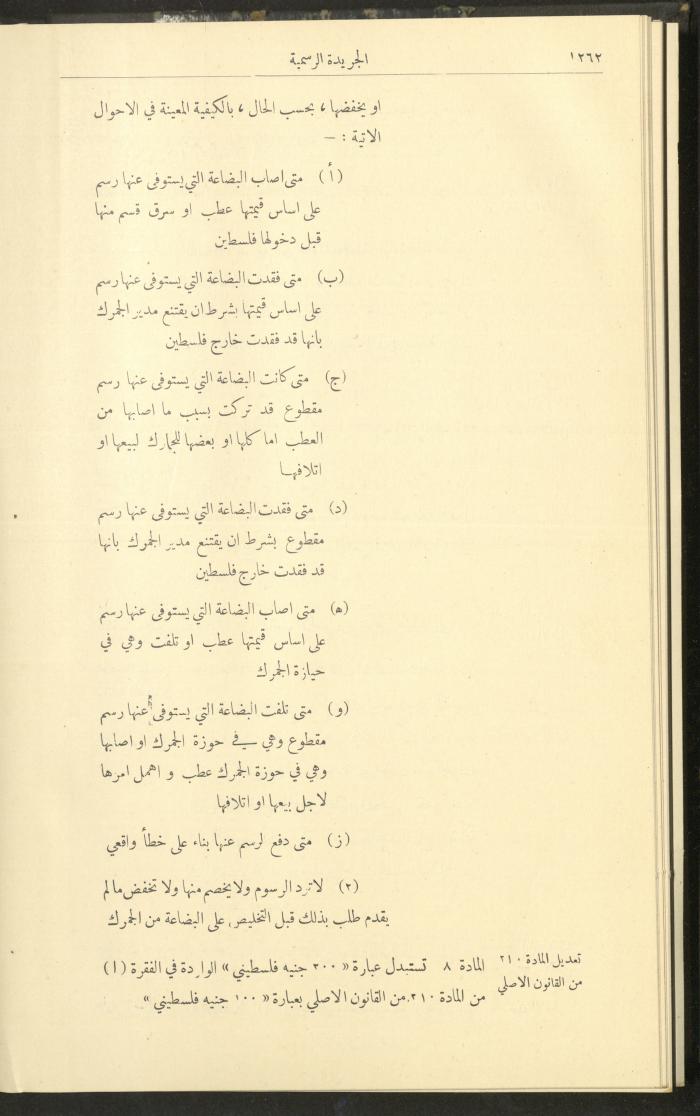 ١٢٦٢
الجريدة الرسمية
او يخفضها ، بحسب الحال ، بالكيفية المعينة في الاحوال
الاتية : —
(أ) متى اصاب البضاعة التي يستوفى عنها رسم
على اساس قيمتها عطب او سرق قسم منها
قبل دخولها فلسطين
(ب) متى فقدت البضاعة التي يستوفى عنها رسم
على اساس قيمتها بشرط ان يقتنع مدير الجمرك
بانها قد فقدت خارج فلسطين
(ج) متى كانت البضاعة التي يستوفى عنها رسم
مقطوع قد تركت بسبب ما اصابها من
العطب اما كلها او بعضها للجمارك لبيعها او
اتلافها
(د) متى فقدت البضاعة التي يستوفى عنها رسم
مقطوع بشرط ان يقتنع مدير الجمرك بانها
قد فقدت خارج فلسطين
(ه) متى اصاب البضاعة التي يستوفى عنها رسم
على اساس قيمتها عطب او تلفت وهي في
حيازة الجمرك
(و) متى تلفت البضاعة التي يستوفى عنها رسم
مقطوع وهي في حوزة الجمرك او اصابها
وهي في حوزة الجمرك عطب و اهمل امرها
لاجل بيعها او اتلافها
(ز) متى دفع لرسم عنها بناء على خطأ واقعي
(٢) لا ترد الرسوم ولا يخصم منها ولا تخفض ما لم
يقدم طلب بذلك قبل التخليص على البضاعة من الجمرك
تعديل المادة ٢١٠
من القانون الاصلي
المادة ٨ تستبدل عبارة « ٢٠٠ جنيه فلسطيني » الواردة في الفقرة (١)
من المادة ٢١٠ من القانون الاصلي بعبارة « ١٠٠ جنيه فلسطيني »